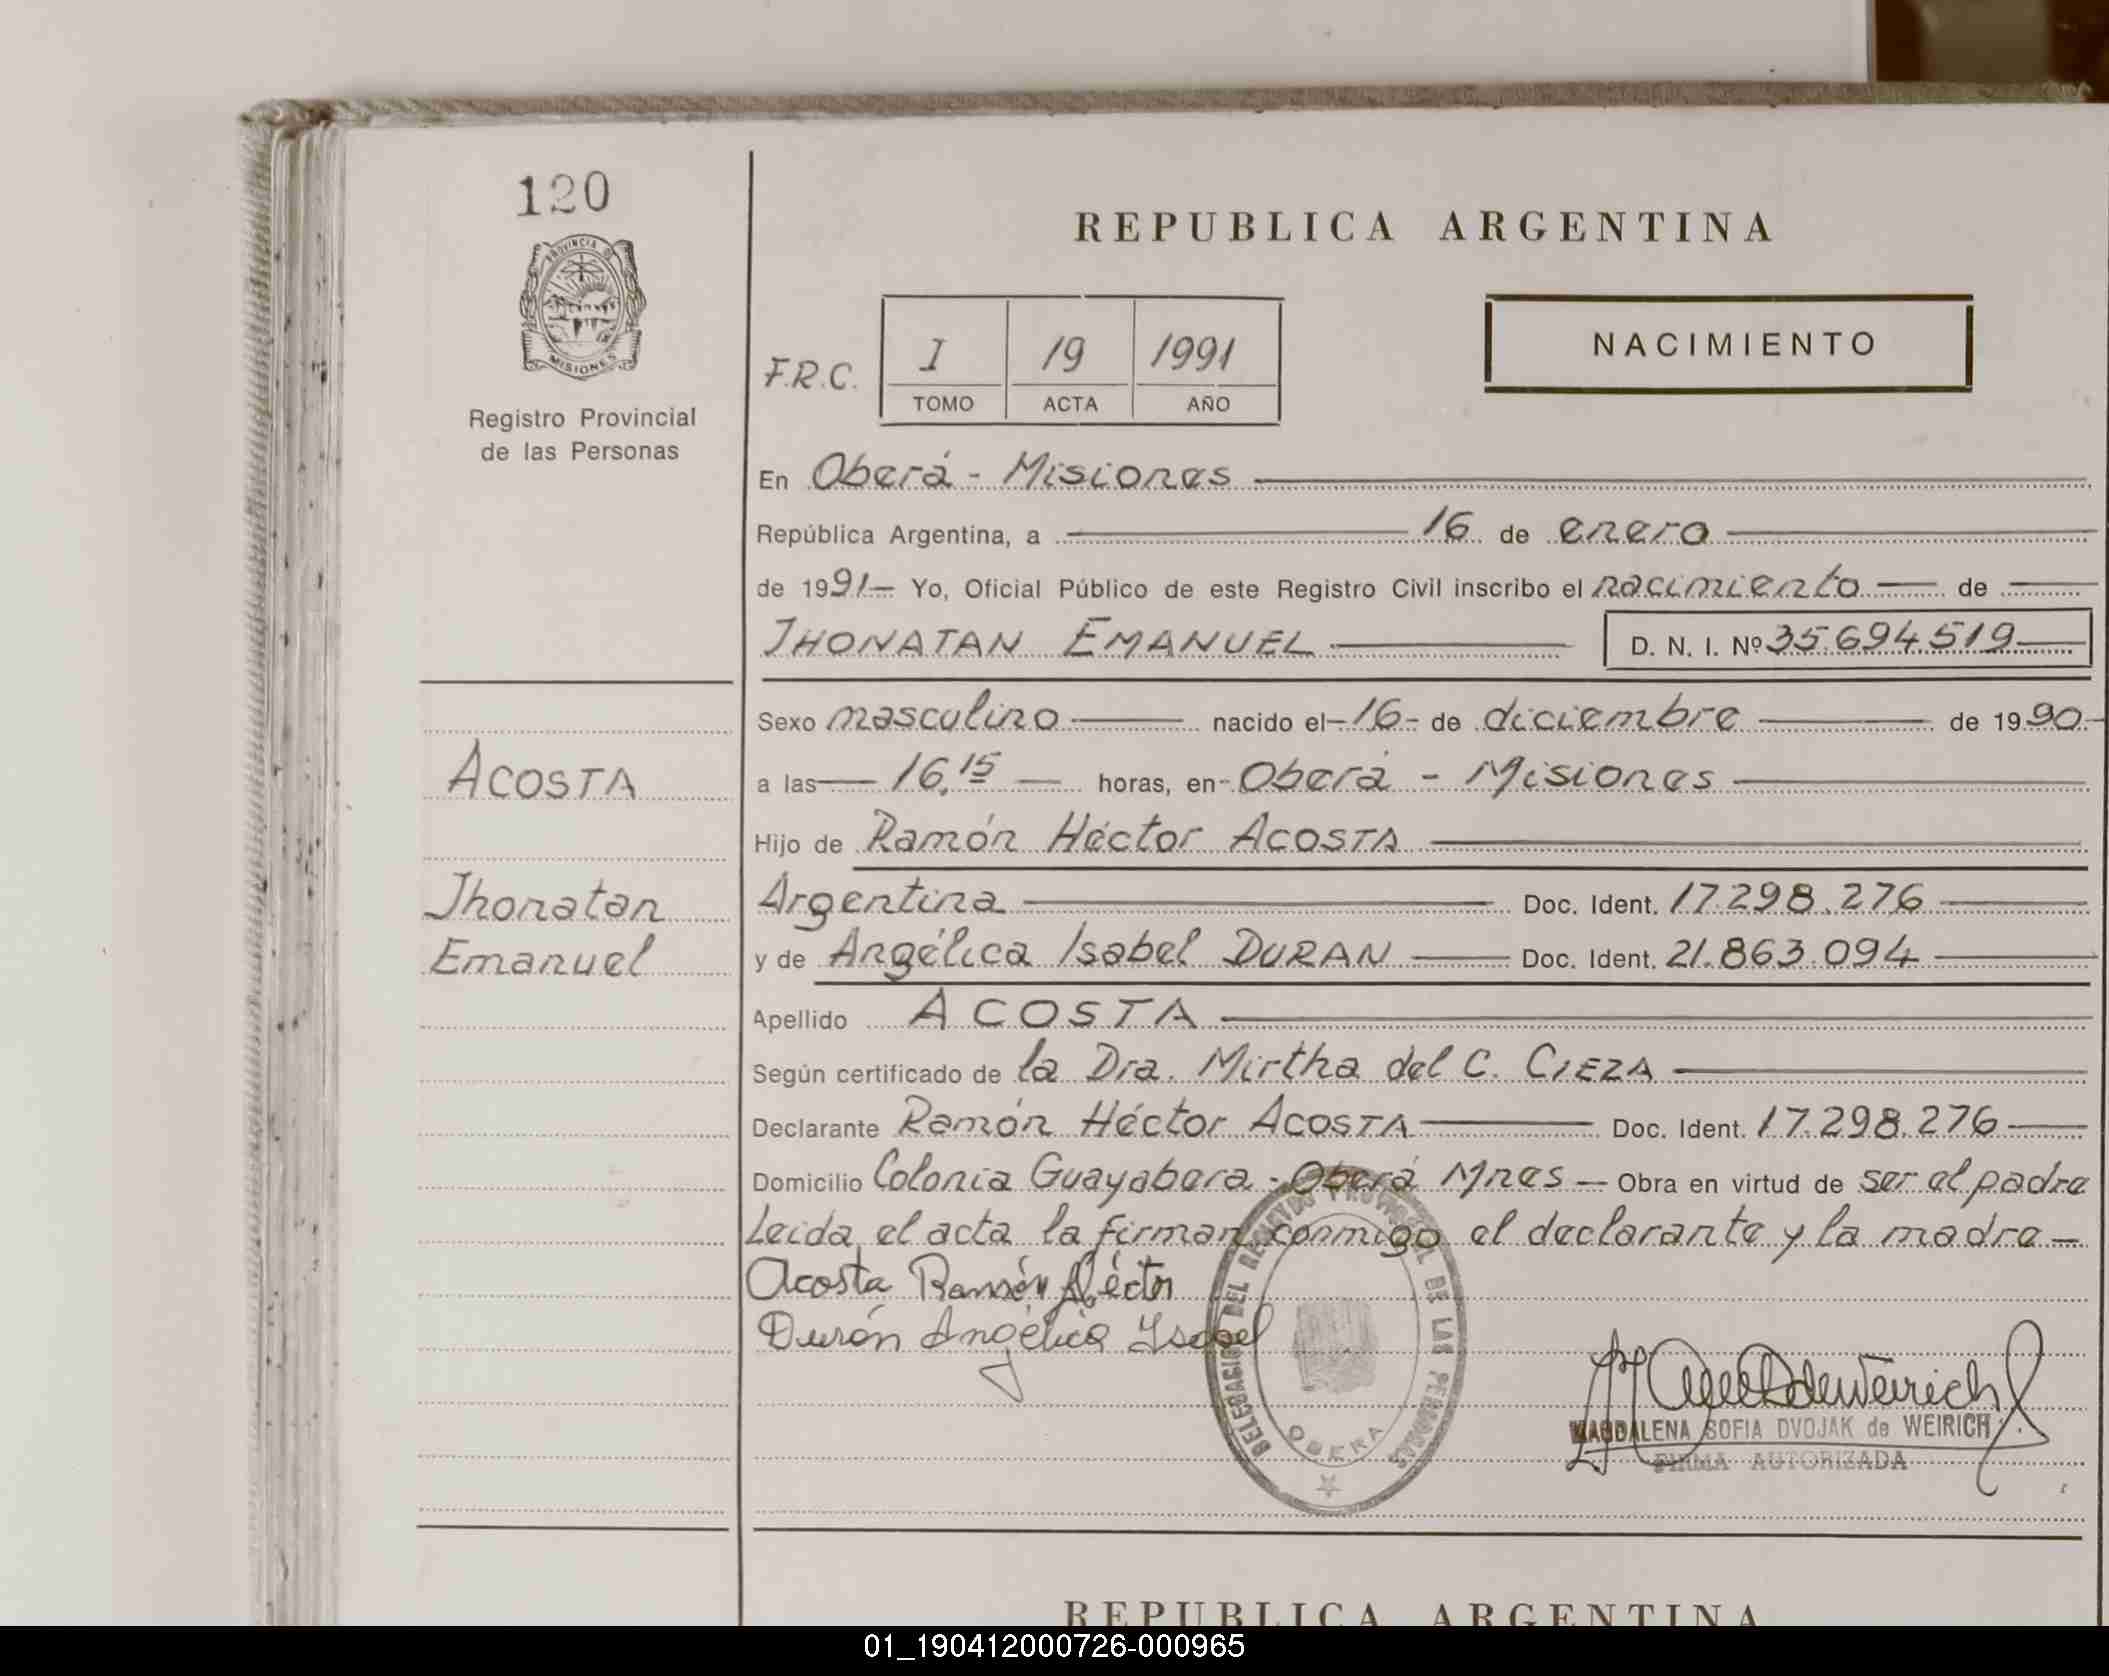 120
PROVINCIA DE
MISIONES
Registro Provincial
de las Personas
REPUBLICA ARGENTINA
F.R.C.
I 19 1991
TOMO ACTA AÑO
NACIMIENTO
En Oberá - Misiones
República Argentina, a 16 de enero
de 1991 Yo, Oficial Público de este Registro Civil inscribo el nacimiento de
JHONATAN EMANUEL D. N. I. Nº 35.694.519
Sexo masculino nacido el 16 de diciembre de 1990
a las 16.15 horas, en Oberá - Misiones
Hijo de Ramón Héctor ACOSTA
Argentina Doc. Ident. 17.298.276
y de Angélica Isabel DURAN Doc. Ident. 21.863.094
Apellido ACOSTA
Según certificado de la Dra. Mirtha del C. CIEZA
Declarante Ramón Héctor ACOSTA Doc. Ident. 17.298.276
Domicilio Colonia Guayabera - Oberá Mnes - Obra en virtud de ser el padre
Leida el acta la firman conmigo el declarante y la madre
Acosta Ramón Héctor
Durán Angélica Ysabel
ACOSTA
Jhonatan
Emanuel
DELEGACION DEL REGISTRO PROVINCIAL DE LAS PERSONAS
OBERA
MAGDALENA SOFIA DVOJAK de WEIRICH
FIRMA AUTORIZADA
REPUBLICA ARGENTINA
01_190412000726-000965